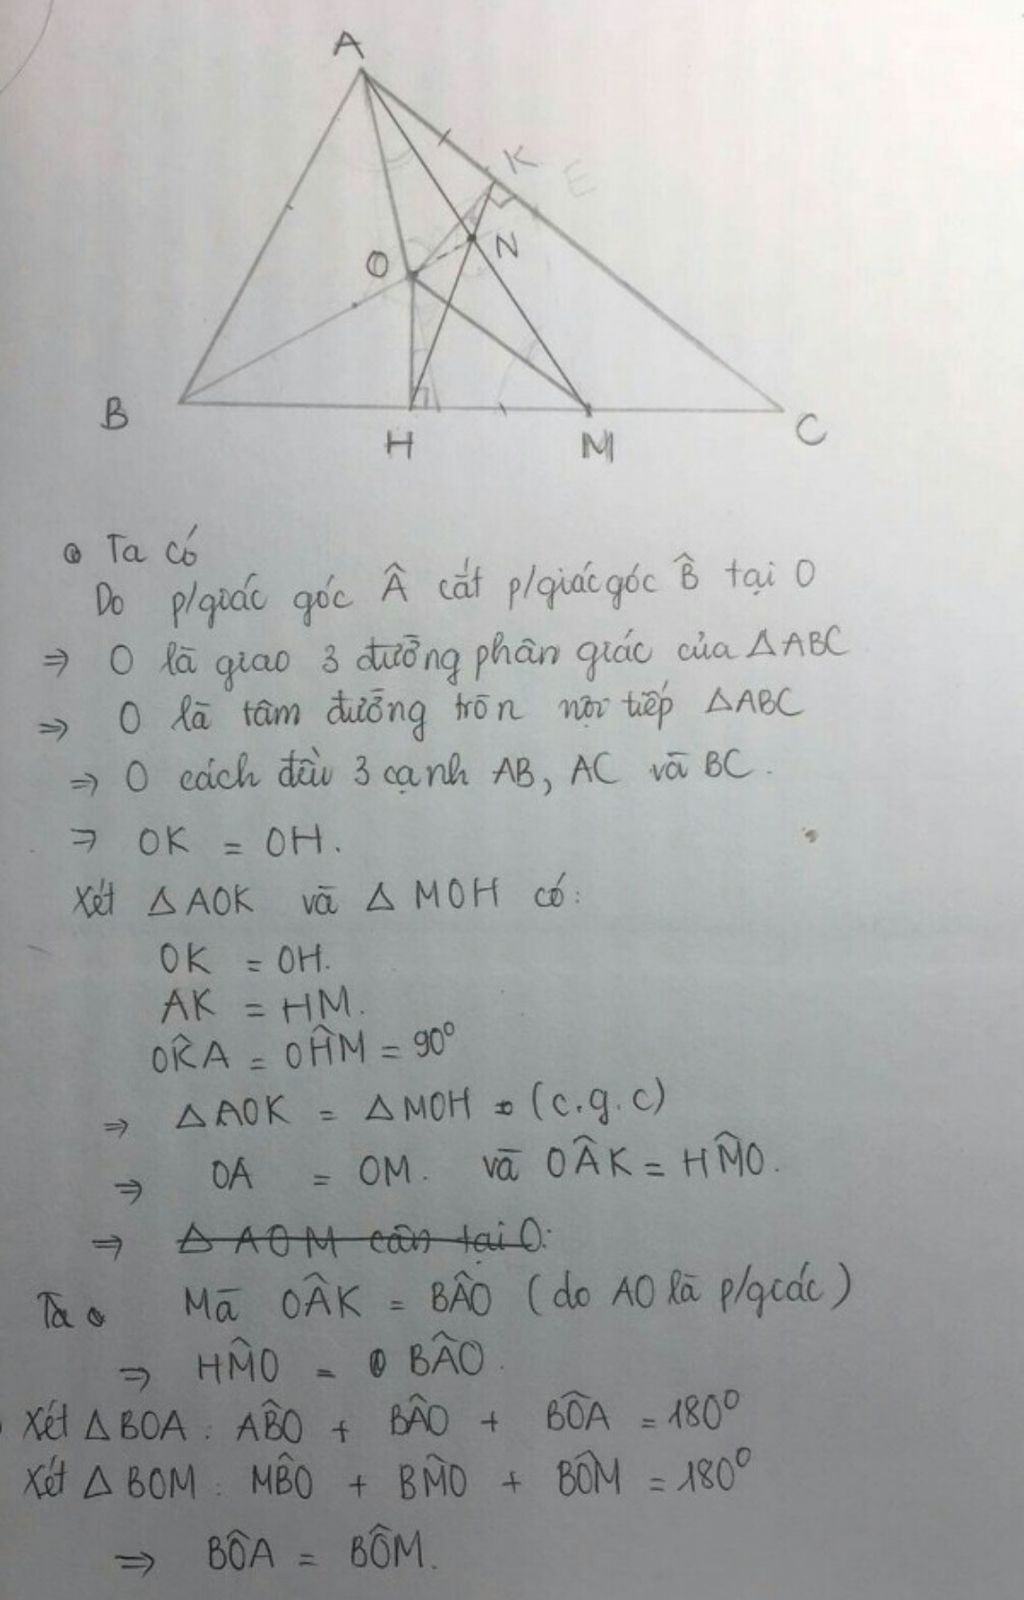 A
K
E
N
O
B
H
M
C
Ta có
Do p/giác góc Â cắt p/giác góc B̂ tại O
⇒ O là giao 3 đường phân giác của ΔABC
⇒ O là tâm đường tròn nội tiếp ΔABC
⇒ O cách đều 3 cạnh AB, AC và BC.
⇒ OK = OH.
Xét ΔAOK và ΔMOH có:
OK = OH.
AK = HM.
OK̂A = OĤM = 90⁰
⇒ ΔAOK = ΔMOH (c.g.c)
⇒ OA = OM. và OÂK = HM̂O.
⇒ Δ AOM cân tại O:
Ta Mà OÂK = BÂO (do AO là p/giác)
⇒ HM̂O = BÂO.
Xét ΔBOA: AB̂O + BÂO + BÔA = 180⁰
Xét ΔBOM: MB̂O + BM̂O + BÔM = 180⁰
⇒ BÔA = BÔM.